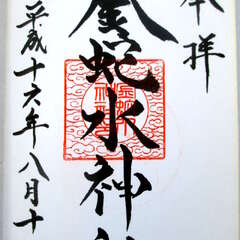 奉拝
金蛇水神社
平成十六年八月十